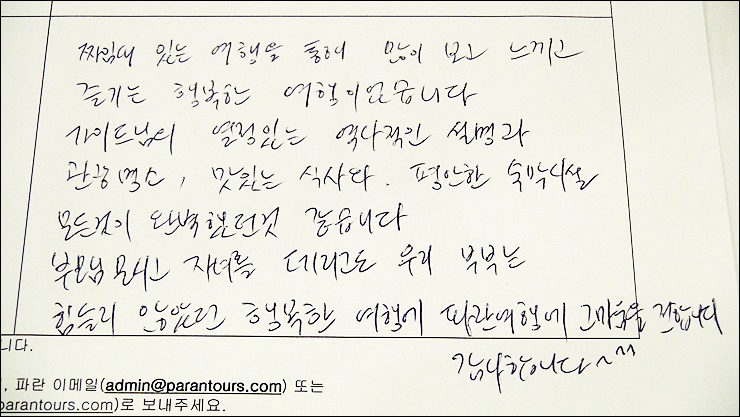 짜임새 있는 여행을 통해 많이 보고 느끼고
즐기는 행복한 여행이었습니다
가이드님의 열정있는 역사적인 설명과
관광명소, 맛있는 식사와. 편안한 숙박시설
모든것이 완벽했던것 같습니다
부모님 모시고 자녀를 데리고도 우리 부부는
힘들지 않았고 행복한 여행에 파란여행에 고마움을 전합니다
감사합니다~^^
니다.
, 파란 이메일(admin@parantours.com) 또는
parantours.com)로 보내주세요.